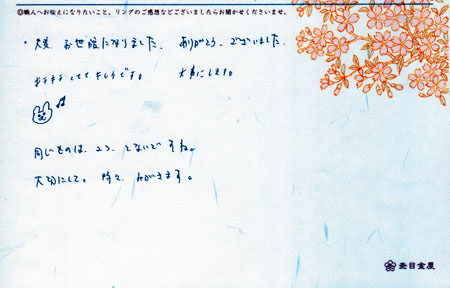 ◎職人へお伝えになりたいこと、リングのご感想などございましたらお聞かせくださいませ。
・大変、お世話になりました。ありがとうございました。
キラキラしててキレイです。大事にします。
同じものは、2つとないですね。
大切にして。時々、みがきます。
杢目金屋